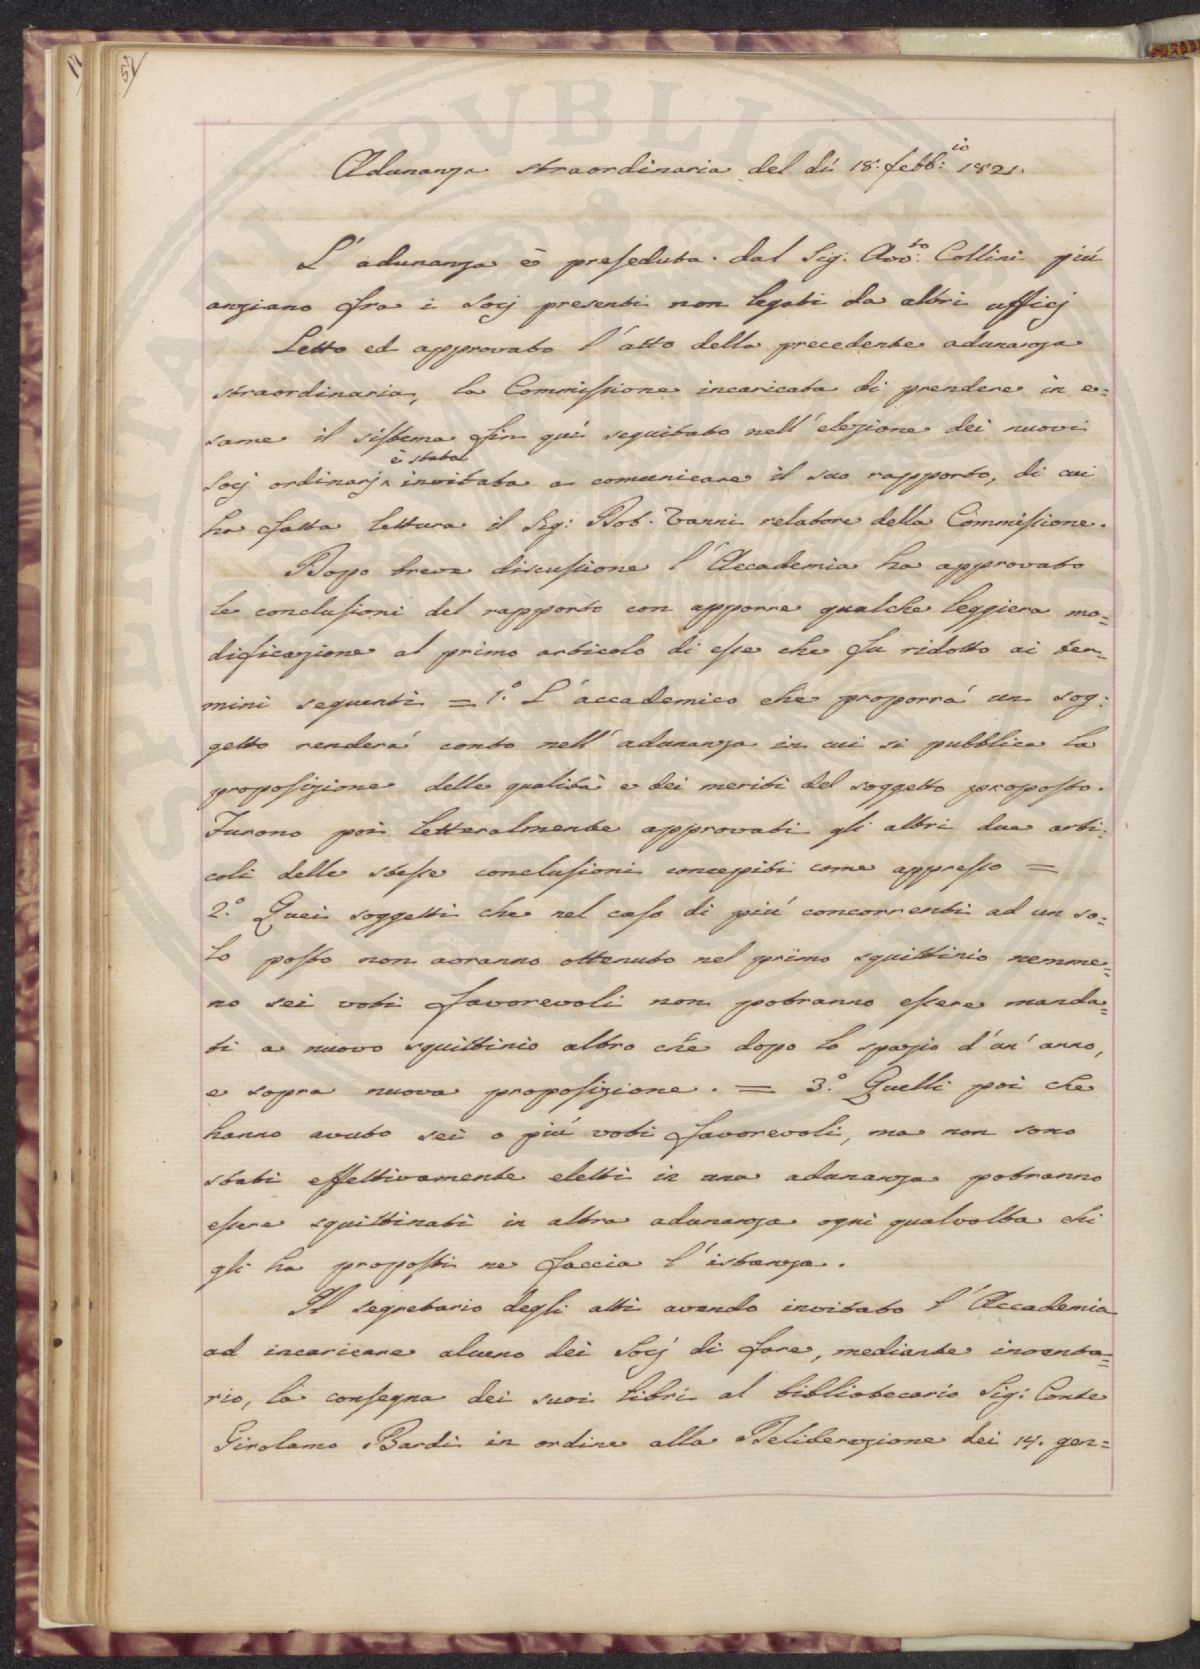 52
Adunanza straordinaria del dí 18. febb:io 1821.
L'adunanza è preseduta dal Sig. Avv:to Collini piú
anziano fra i Socj presenti non legati da altri ufficj
Letto ed approvato l'atto della precedente adunanza
straordinaria, la Commissione incaricata di prendere in e=
same il sistema fin quí seguitato nell'elezione dei nuovi
è stata
Socj ordinarj invitata a comunicare il suo rapporto, di cui
ha fatta lettura il Sig: Dot. Vanni relatore della Commissione.
Dopo breve discussione l'Accademia ha approvato
le conclusioni del rapporto con apporre qualche leggiera mo=
dificazione al primo articolo di esse che fu ridotto ai ter=
mini seguenti = 1.° L'accademico che proporrá un sog:
getto renderá conto nell'adunanza in cui si pubblica la
proposizione delle qualità e dei meriti del soggetto proposto.
Furono poi letteralmente approvati gli altri due arti:
coli delle stesse conclusioni concepiti come appresso =
2.° Quei soggetti che nel caso di piú concorrenti ad un so=
lo posto non avranno ottenuto nel primo squittinio nemme=
no sei voti favorevoli non potranno essere manda=
ti a nuovo squittinio altro che dopo lo spazio d'un'anno,
e sopra nuova proposizione. = 3.° Quelli poi che
hanno avuto sei o piú voti favorevoli, ma non sono
stati effettivamente eletti in una adunanza potranno
essere squittinati in altra adunanza ogni qualvolta chi
gli ha proposti ne faccia l'istanza.
Il segretario degli atti avendo invitato l'Accademia
ad incaricare alcuno dei Socj di fare, mediante inventa=
rio, la consegna dei suoi libri al bibliotecario Sig: Conte
Girolamo Bardi in ordine alla Deliberazione dei 14. gen=